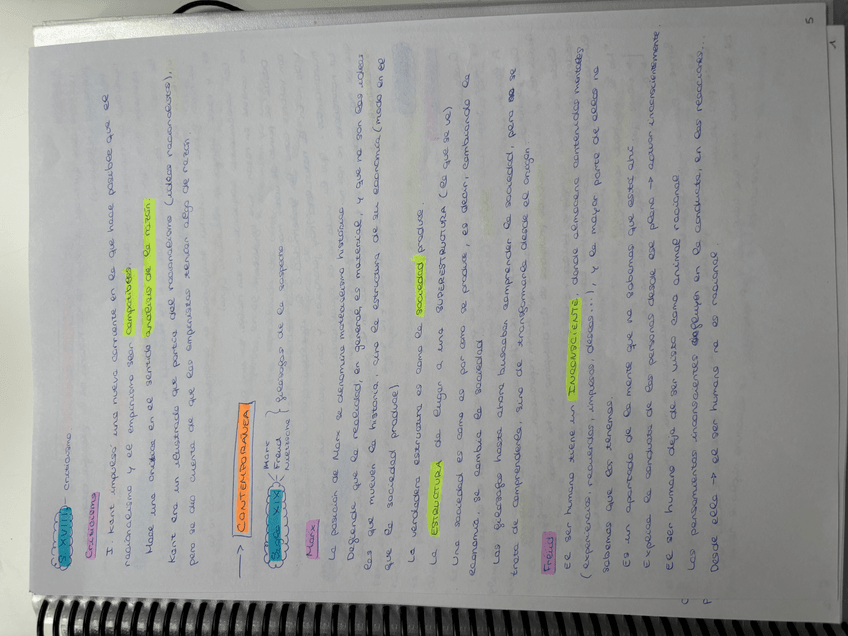 S. XVIII - criticismo
Criticismo
I. Kant impulsó una nueva corriente en la que hace posible que el
racionalismo y el empirismo sean compatibles.
Hace una crítica en el sentido análisis de la razón.
Kant era un ilustrado que partía del racionalismo (ideas racionalistas),
pero se dio cuenta de que los empiristas tenían algo de razón.
→ CONTEMPORÁNEA
Siglo XIX
Marx
Freud
Nietzsche
filósofos de la sospecha
Marx
La posición de Marx se denomina materialismo histórico
Defiende que la realidad, en general, es material, y que no son las ideas
las que mueven la historia, sino la estructura de su economía (modo en el
que la sociedad produce)
La verdadera estructura es como la sociedad produce.
La ESTRUCTURA da lugar a una SUPERESTRUCTURA (lo que se ve)
Una sociedad es como es por como se produce, es decir, cambiando la
economía, se cambia la sociedad
Los filósofos hasta ahora buscaban comprender la sociedad, pero no se
trata de comprenderla, sino de transformarla desde el origen
Freud
El ser humano tiene un INCONSCIENTE, donde almacena contenidos mentales
(experiencias, recuerdos, impulsos, deseos...), y la mayor parte de ellos no
sabemos que los tenemos.
Es un apartado de la mente que no sabemos que está ahí
Explica la conducta de las personas desde ese plano → actúan inconscientemente.
El ser humano deja de ser visto como animal racional
Los pensamientos inconscientes influyen en la conducta, en las reacciones...
Desde ello → el ser humano no es racional.
5
1